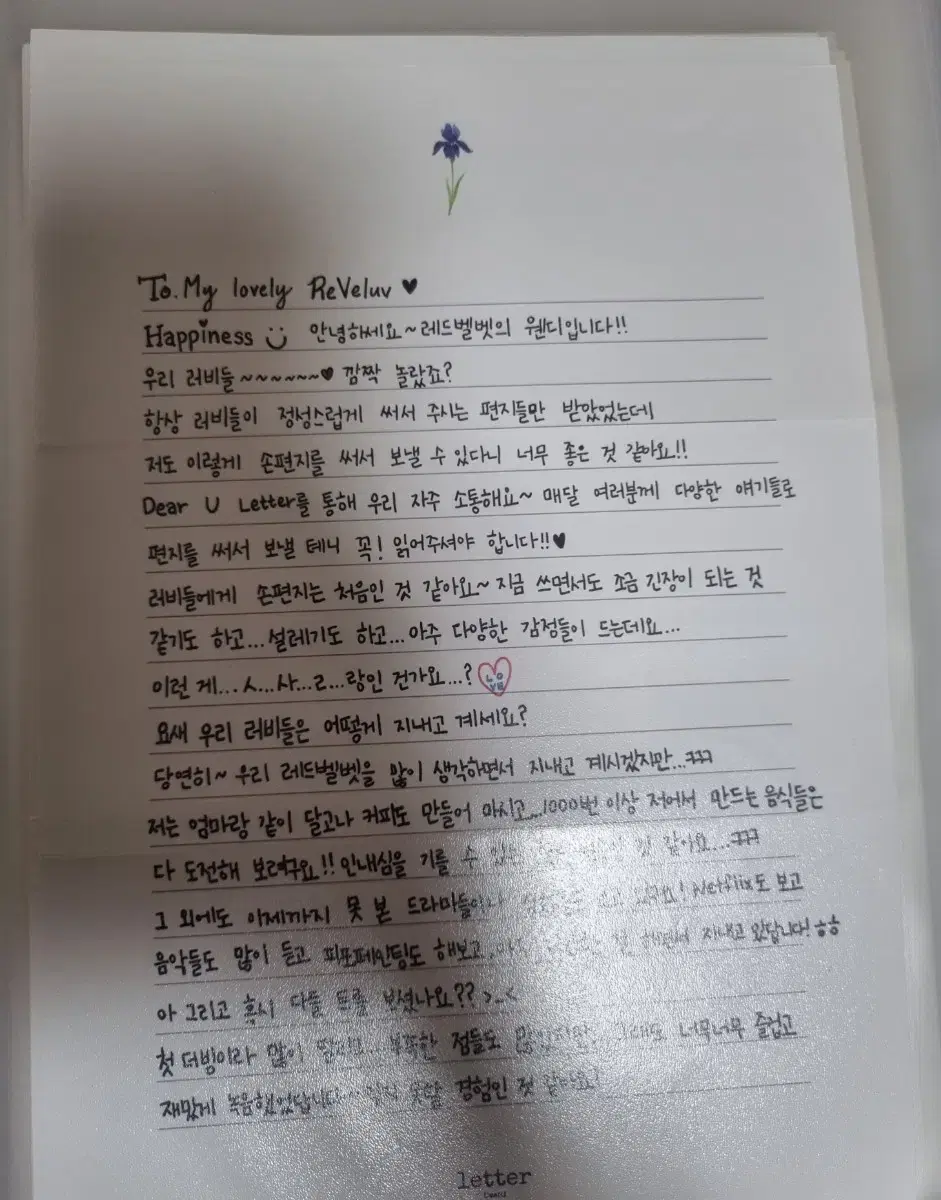 To. My lovely ReVeluv ♥
Happiness 안녕하세요~레드벨벳의 웬디입니다!!
우리 러비들~~~~~~♥ 깜짝 놀랐죠?
항상 러비들이 정성스럽게 써서 주시는 편지들만 받았었는데
저도 이렇게 손편지를 써서 보낼 수 있다니 너무 좋은 것 같아요!!
Dear U Letter를 통해 우리 자주 소통해요~ 매달 여러분께 다양한 얘기들로
편지를 써서 보낼 테니 꼭! 읽어주셔야 합니다!!♥
러비들에게 손편지는 처음인 것 같아요~ 지금 쓰면서도 조금 긴장이 되는 것
같기도 하고...설레기도 하고...아주 다양한 감정들이 드는데요...
이런 게...ㅅ...사...ㄹ...랑인 건가요...? LOVE
요새 우리 러비들은 어떻게 지내고 계세요?
당연히~ 우리 레드벨벳을 많이 생각하면서 지내고 계시겠지만...ㅋㅋㅋ
저는 엄마랑 같이 달고나 커피도 만들어 마시고...1000번 이상 저어서 만드는 음식들은
다 도전해 보려구요!! 인내심을 기를 수 있는 것 같아요...ㅋㅋㅋ
그 외에도 이제까지 못 본 드라마들이나 보고 있구요! Netflix도 보고
음악들도 많이 듣고 피포페인팅도 해보고, 하면서 지내고 있답니다! ㅎㅎ
아 그리고 혹시 다들 트롤 보셨나요?? >_<
첫 더빙이라 많이 부족한 점들도 많았지만, 그래도 너무너무 즐겁고
재밌게 녹음했었답니다 잊지 못할 경험인 것 같아요!
letter